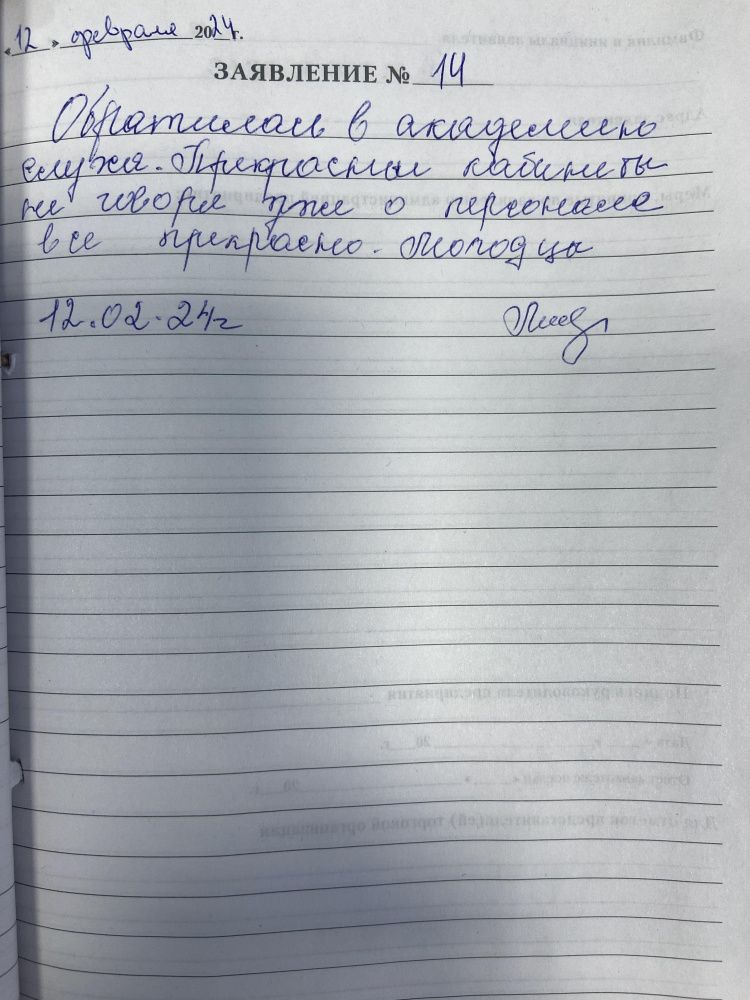 «12» февраля 2024г.
ЗАЯВЛЕНИЕ № 14
Обратилась в академию
слуха. Прекрасные кабинеты
не говоря уже о персонале
все прекрасно. Молодцы
12.02.24г